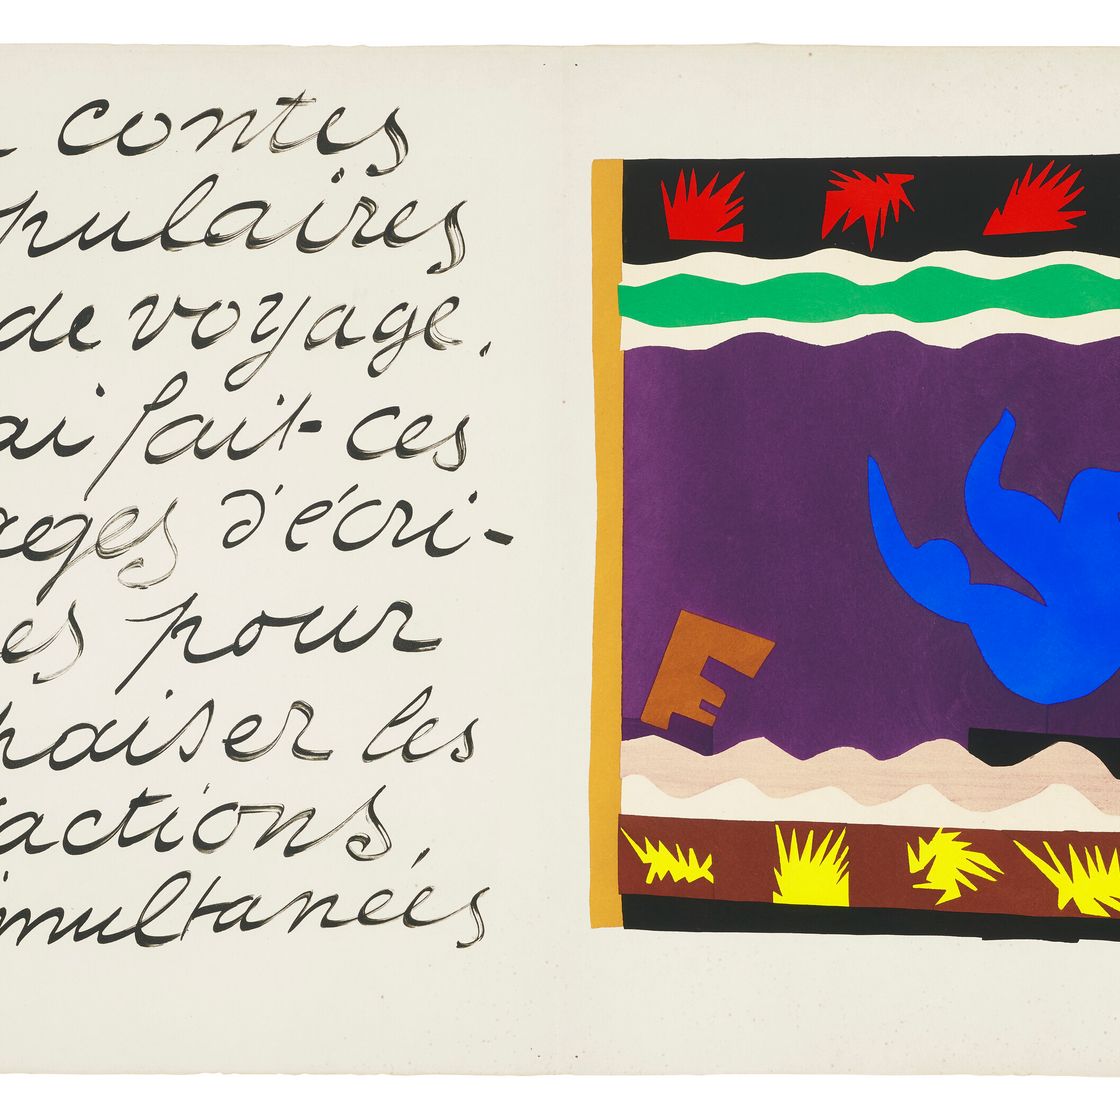 contes
pulaires
de voyage.
ai fait ces
ages d'écri-
es pour
paiser les
actions
imultanées